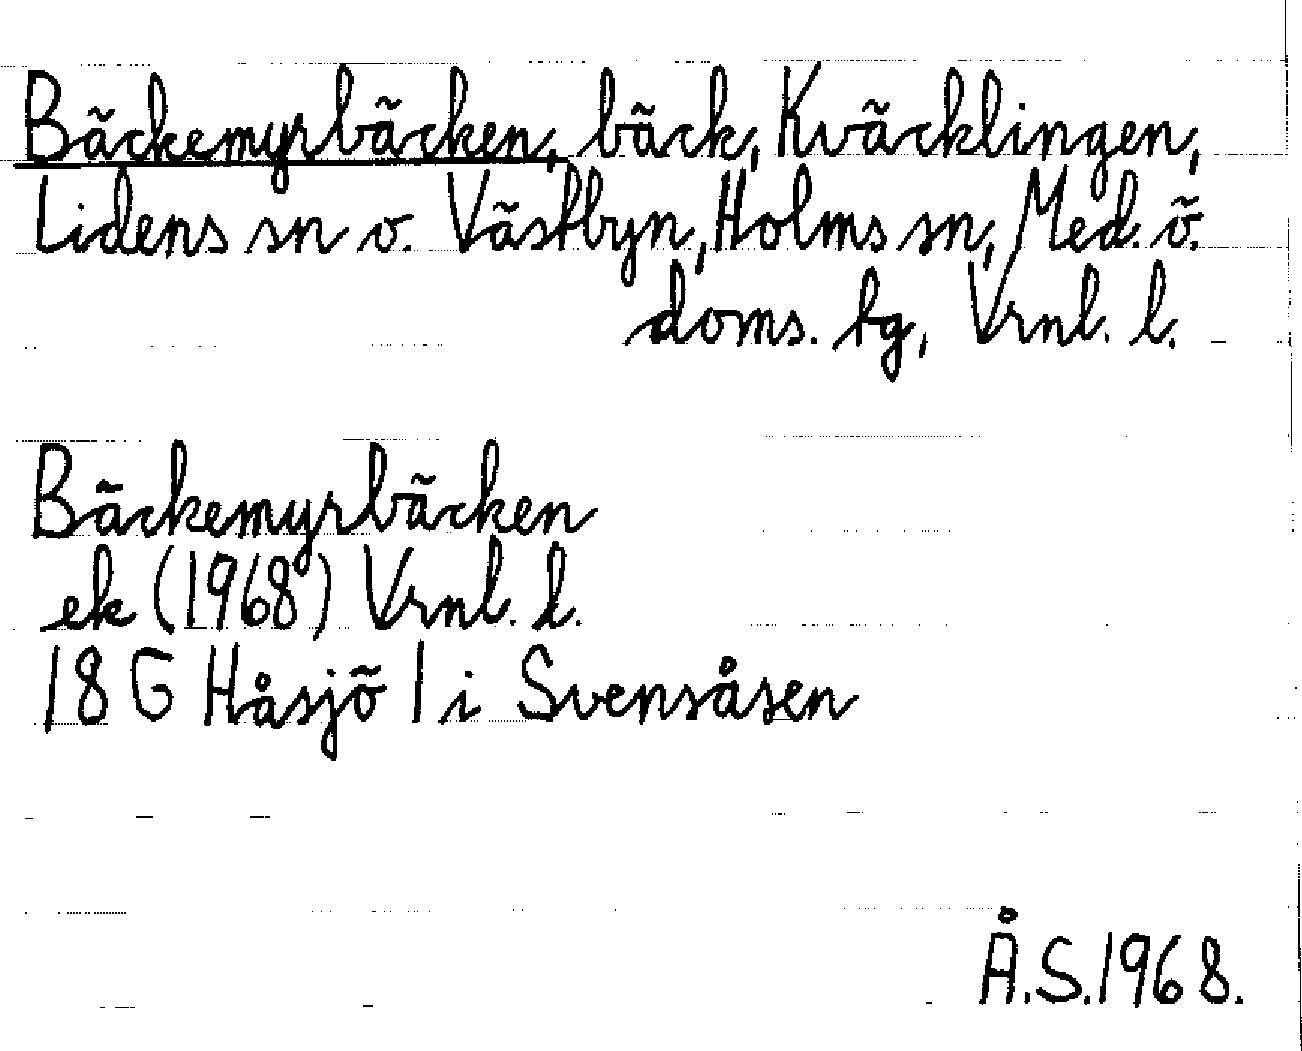 Bäckemyrbäcken, bäck, Kväcklingen,
Lidens sn o. Västbyn, Holms sn, Med. ö.
doms. hg, Vrnl. l.
Bäckemyrbäcken
ek (1968) Vrnl. l.
18 G Håsjö 1 i Svensåsen
Å.S. 1968.